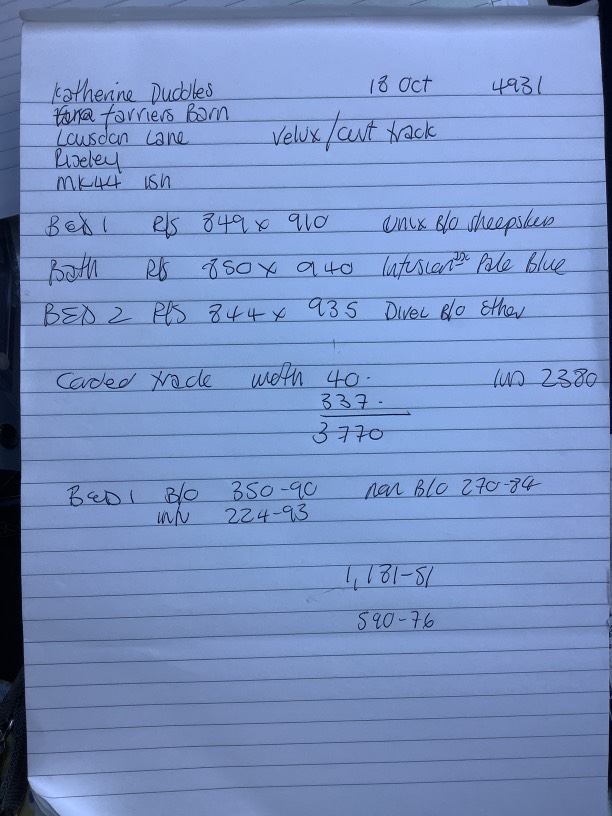 Katherine Duddles 18 Oct 4931
Farriers Barn
Lowsdon Lane Velux/curt track
Riseley
MK44 1SH
BED 1 R/S 849 x 910 Unix B/O Sheepskin
Bath R/S 850 x 940 Infusion Pale Blue
BED 2 R/S 844 x 935 B/O Ether
Corded track width 40.
337.
3770
2380
BED 1 B/O 350-90 non B/O 270-84
224-93
1,181-51
590-76